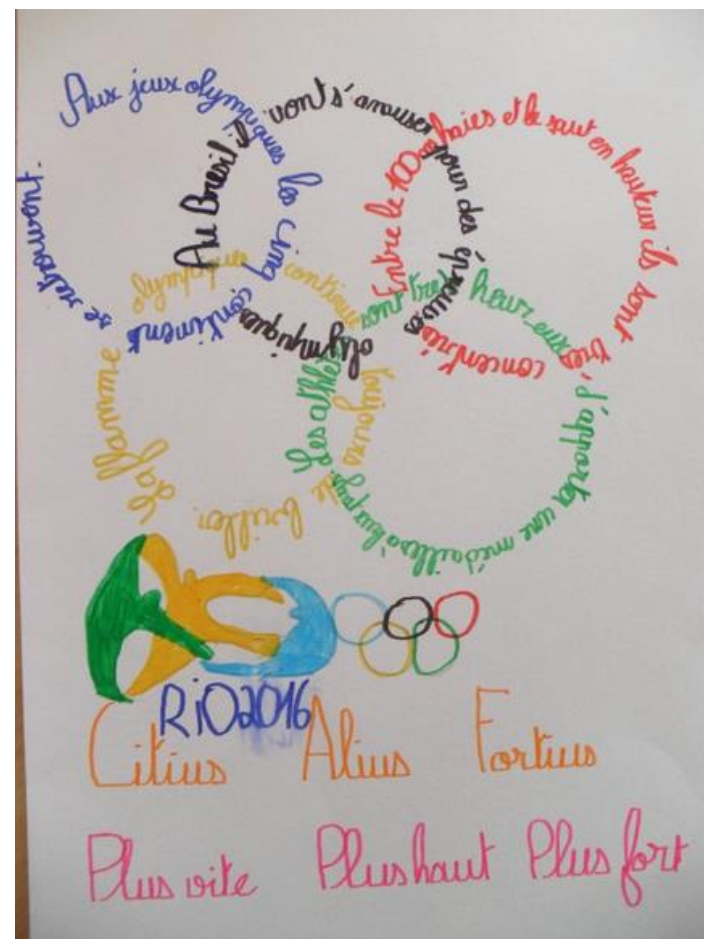 Aux jeux olympiques les cinq continents se retrouvent.
Au Brésil il vont s'amuser pour des épreuves olympiques
Entre le 100m haies et le saut en hauteur ils sont très concentrés
La flamme olympique continue toujours de briller.
Les athlètes sont très heureux d'apporter une médaille à leur pays.
RiO2016
Citius Alius Fortius
Plus vite Plus haut Plus fort